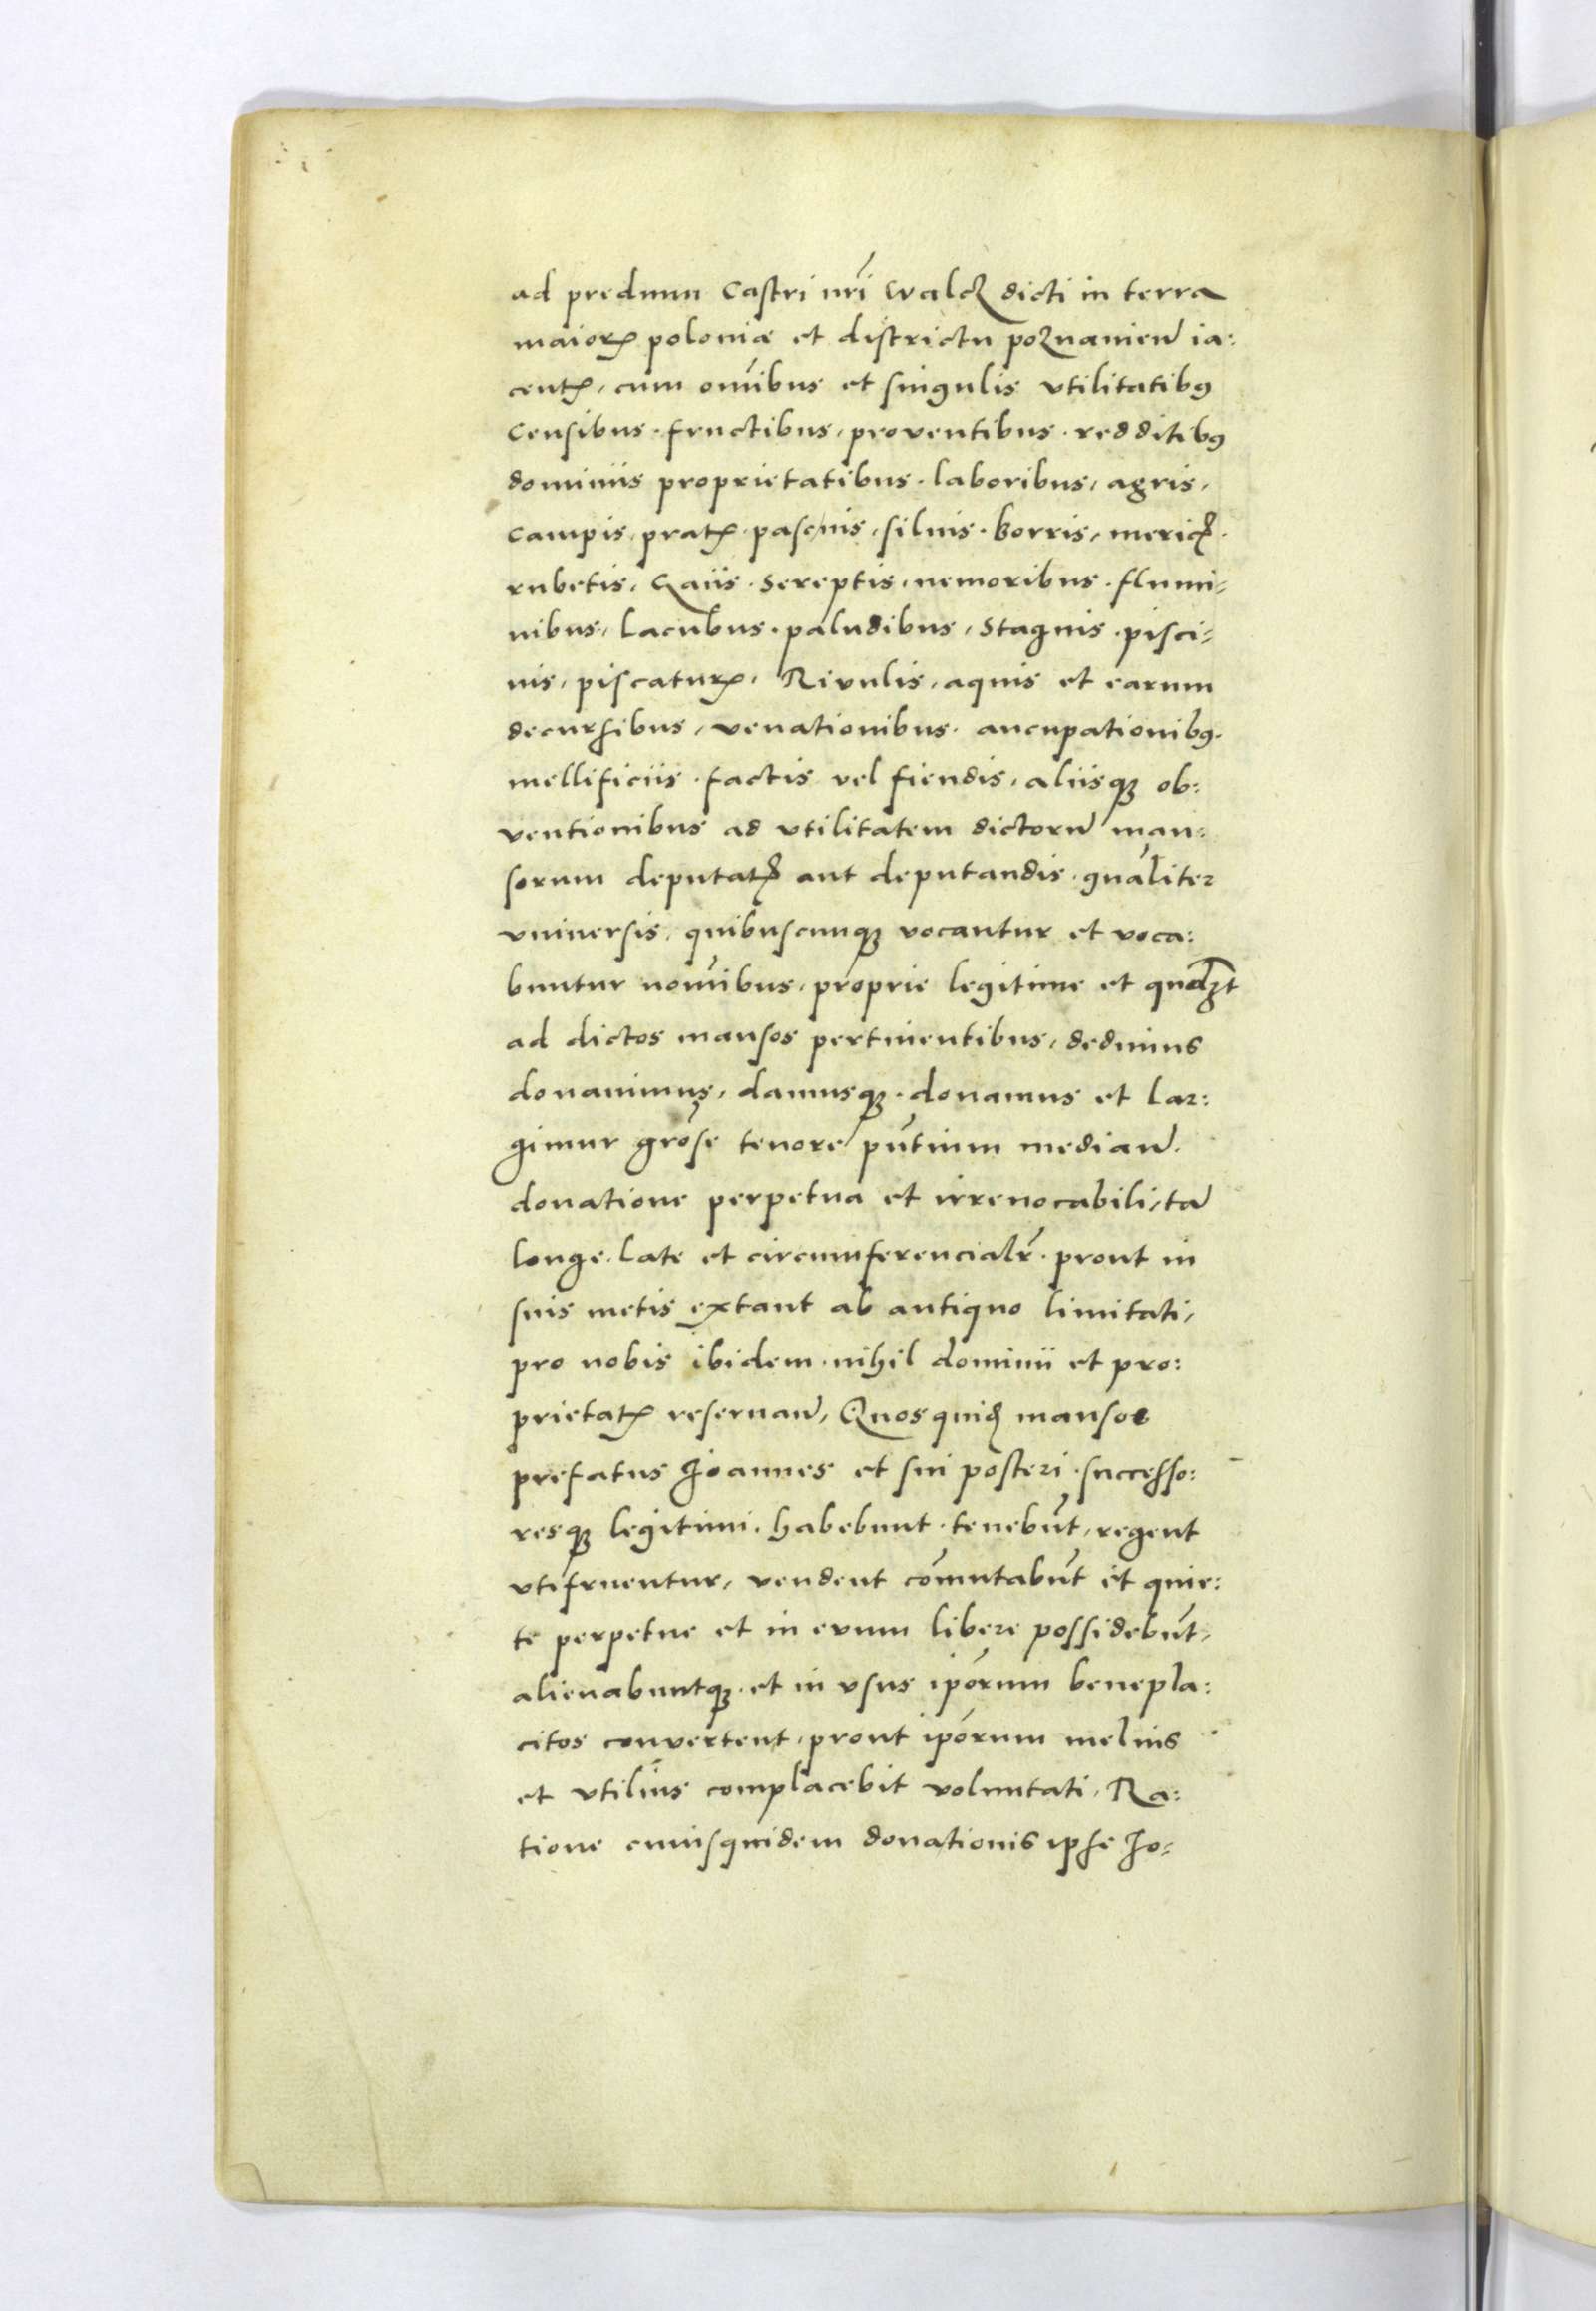 ad predium Castri nr̄i walcz dicti in terra
maiorꝭ poloniæ et districtu poznanien̄ ia:
centꝭ, cum om̄ibus et singulis vtilitatibꝰ
Censibus. fructibus, proventibus. redditibꝰ
dominiis proprietatibus. laboribus, agris,
Campis, pratꝭ. pascuis, siluis. borris, mericꝭ.
rubetis, Gaiis. Sereptis, nemoribus. flumi-
nibus, Lacubus. paludibus, Stagnis. pisci-
nis, piscaturꝭ, Rivulis, aquis et earum
decursibus, venationibus. aucupationibꝰ.
mellificiis. factis vel fiendis, aliisqꝫ ob:
ventionibus ad vtilitatem dictorū man:
sorum deputatꝭ aut deputandis. qual̄iter
vniversis, quibuscunqꝫ vocantur et voca:
buntur nom̄ibus, proprie legitime et
ad dictos mansos pertinentibus, dedimus
donavimus, damusqꝫ. donamus et lar:
gimur grōse tenore pn̄tium median̄.
donatione perpetua et irreuocabili, tā
longe. late et circumferencialr̄. prout in
suis metis extant ab antiquo limitati,
pro nobis ibidem. nihil dominii et pro:
prietatꝭ reseruan̄, Quos quidꝭ mansos
prefatus Joannes et sui posteri. successo:
resqꝫ legitimi. habebunt. tenebūt, regent
vtifruentur, vendent com̄utabūt et quie:
te perpetue et in evum libere possidebūt,
alienabuntqꝫ. et in vsus ip̄orum benepla:
citos convertent, prout ip̄orum melius
et vtilius complacebit voluntati, Ra:
tione cuiusquidem donationis ipse Jo-